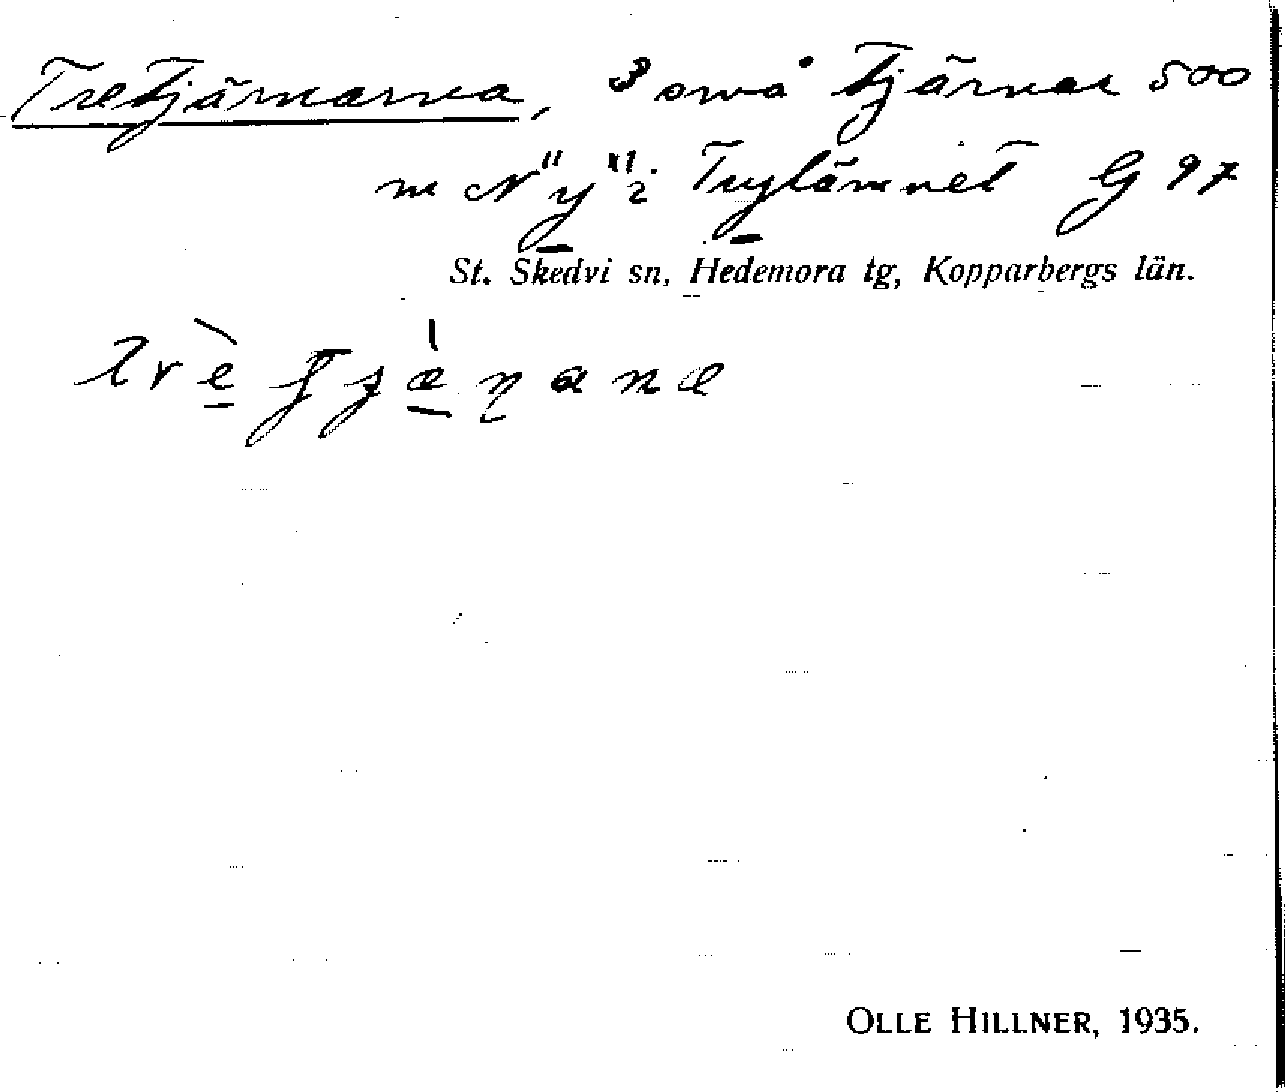 Tretjärnarna, 3 små tjärnar 500
m N "y" i Trytämnet G 97
St. Skedvi sn, Hedemora tg, Kopparbergs län.
OLLE HILLNER, 1935.